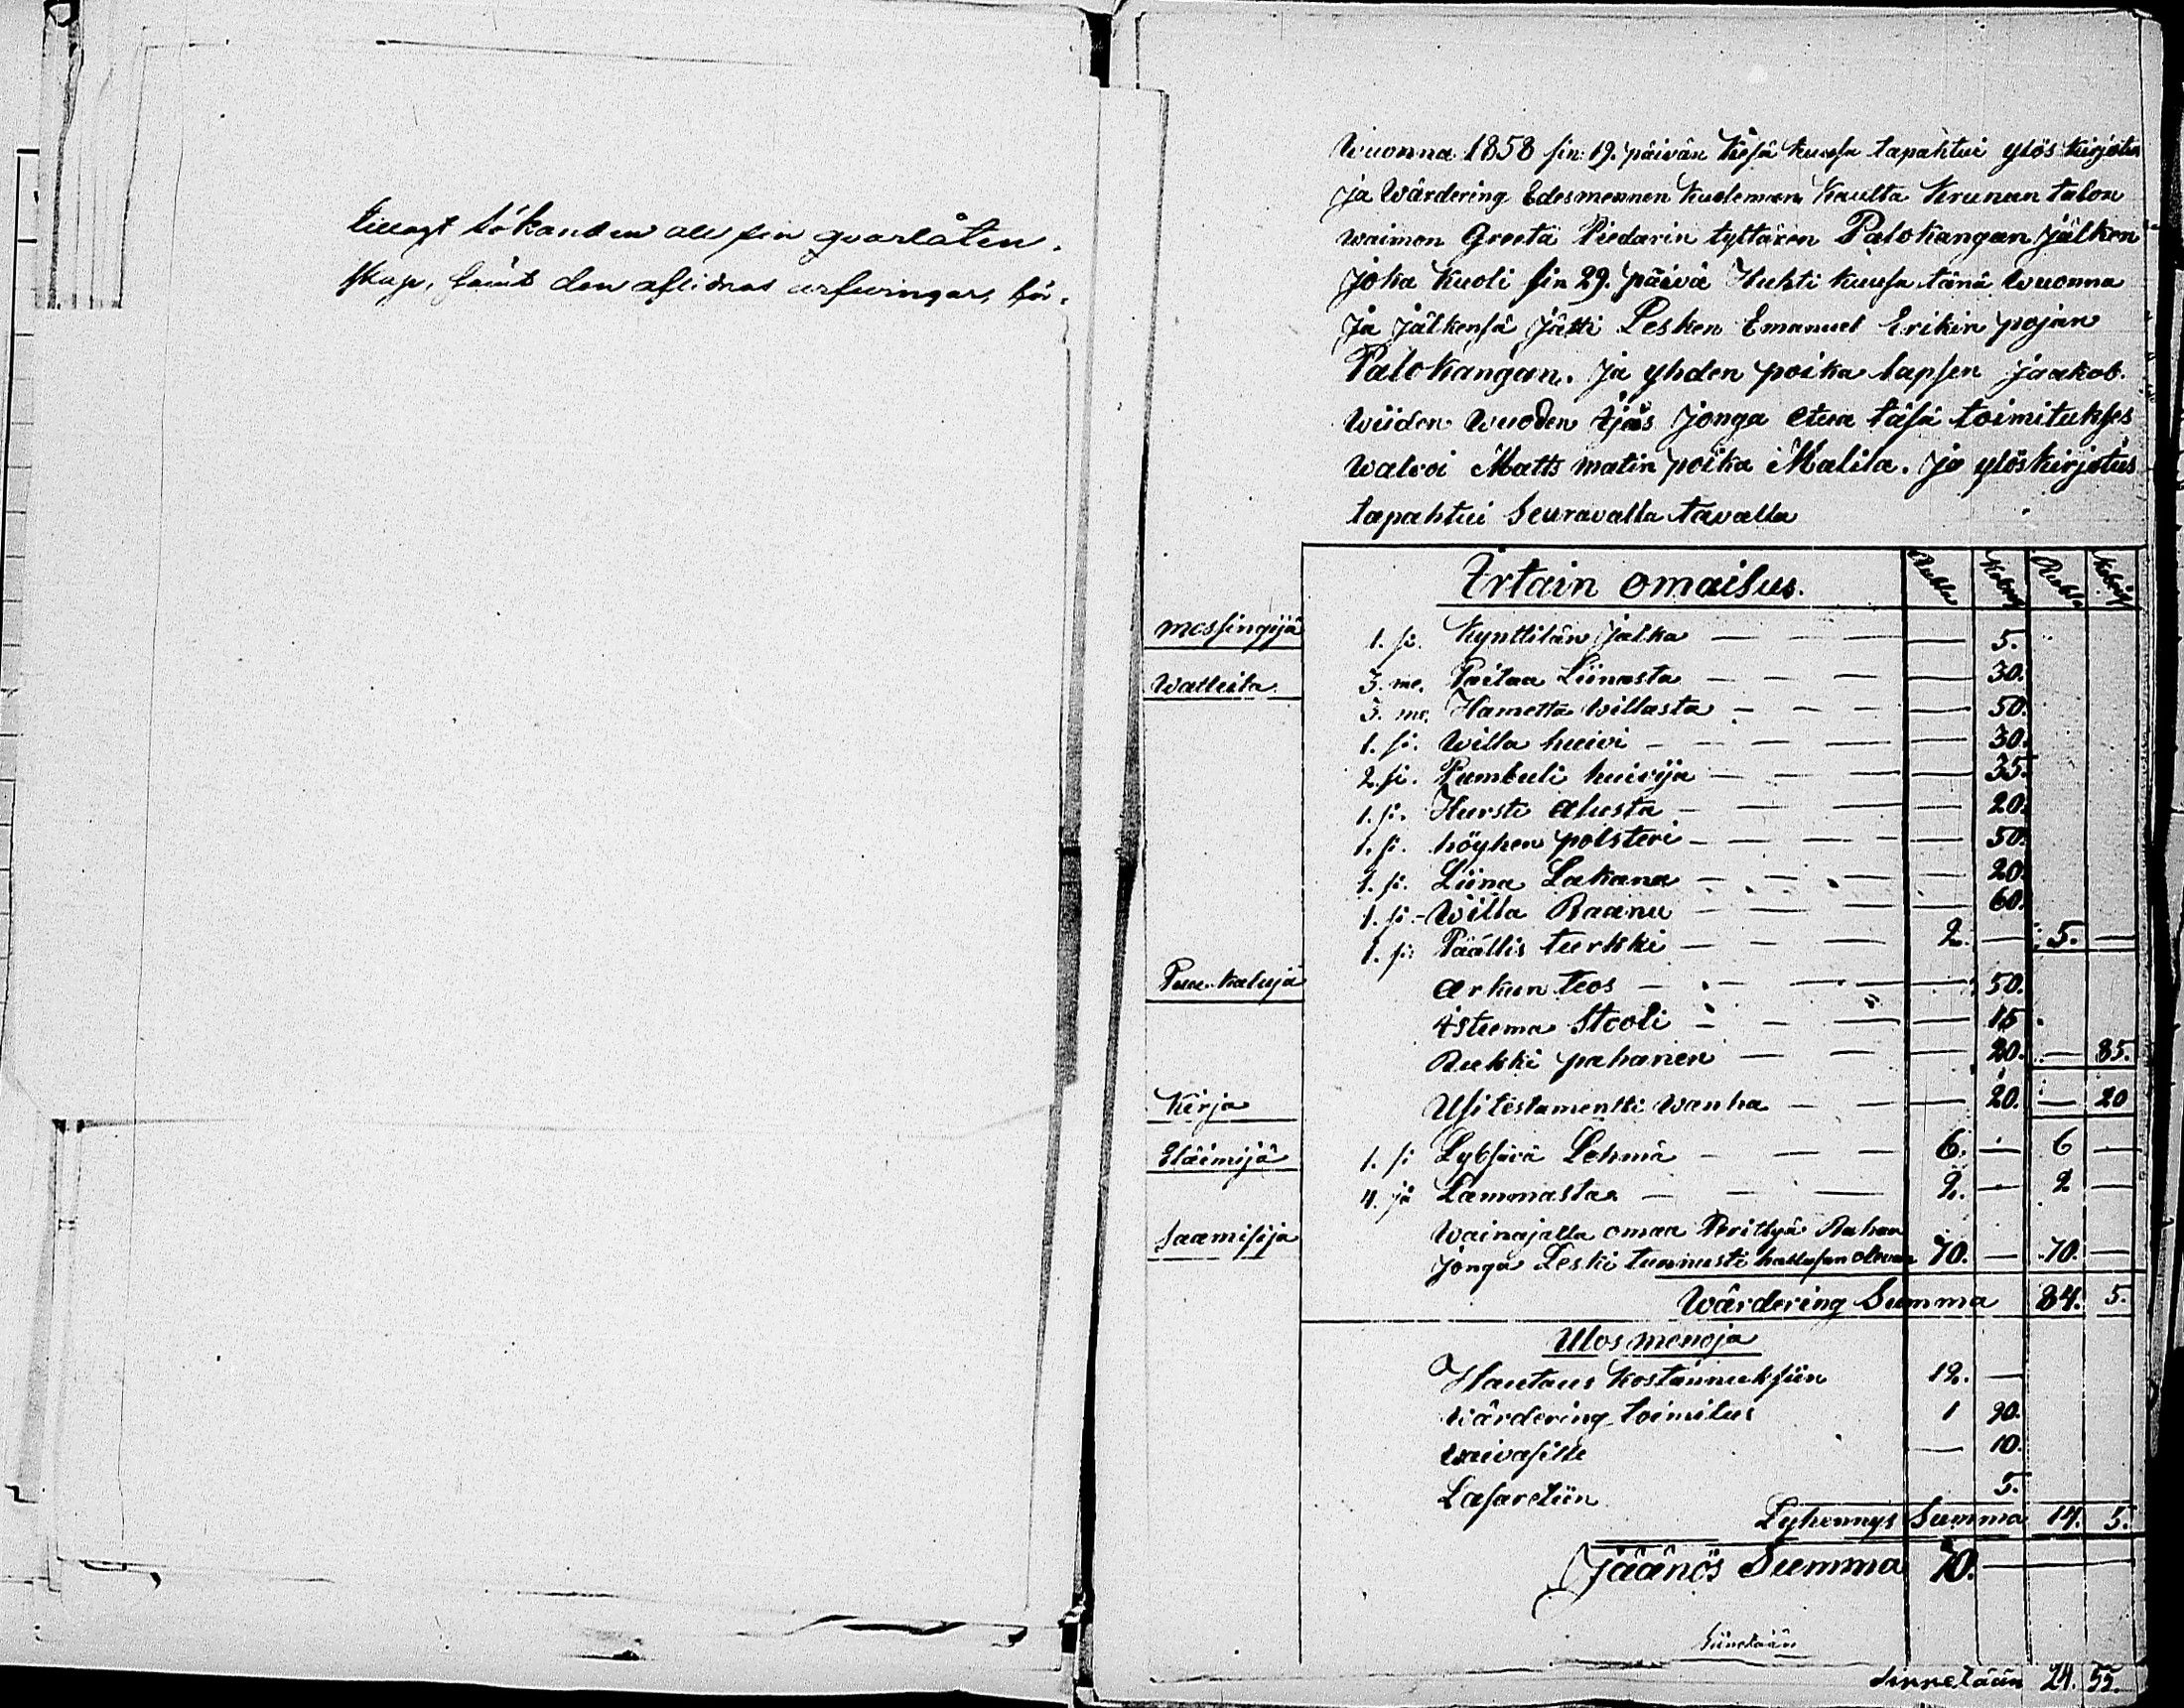 tillagt sökanden all sin qvarlåten-
skap, samt den aflidnas arfvingar, hör,
Wuonna 1858 sin: 19. päivän Kesä kuusa tapahtui ylös kirjotus
ja Wärdering Edesmennen kuoleman kautta Krunun talon
waimon Greeta Piedarin tyttären Palokangan jälken
joka kuoli sin 29. päivä Huhti kuusa tänä wuonna
ja jälkensä jätti Lesken Emanuel Erikin pojan
Palokangan. ja yhden poika lapsen jaakob.
wiiden wuoden ijäs jonga etua täsä toimitukses
walvoi Matts matin poika Malila. ja ylöskirjotus
tapahtui Seuravalla tavalla
Irtain omaisus. Rubla Kobeg Rubla Kobeig
messingijä 1. si. Kynttilän jalka — — — 5.
Watteita 3. me. Paitaa Liinasta — — — 30.
3. me. Hametta willasta — — — 50.
1. si. Willa huivi — — — 30.
2. si. Pumbuli huivija — — — 35.
1. si. Hursti alusta — — — 20.
1. si. höyhen polsteri — — — 50.
1. si. Liina Lakana — — — 20.
1. si. Willa Raanu — — — 60.
1. si. Päällis turkki — — — 2. — 5. —
Puu kaluja arkun teos — — — 50.
istuma Stooli — — — 15.
Rukki pahanen — — — 20. — 85.
Kirja Usi testamentti wanha — — — 20. — 20
Eläimijä 1. si Lybsävä Lehmä — — — 6. — 6 —
4. jä Lammasta — — — 2. — 2 —
Saamisija Wainajalla omaa Perittyä Rahaa
jonga Leski tunnusti hallusan olevan 70. — 70. —
Wärdering Summa 84. 5.
Ulos menoja
Hautaus kostannuksiin 12. —
Wärdering toimitus 1 90.
waivasille — 10.
Lasaretiin 5.
Lyhennys Summa 14. 5.
Jäänös Summa 70. —
Siinetään
Sinnetään 24. 55.